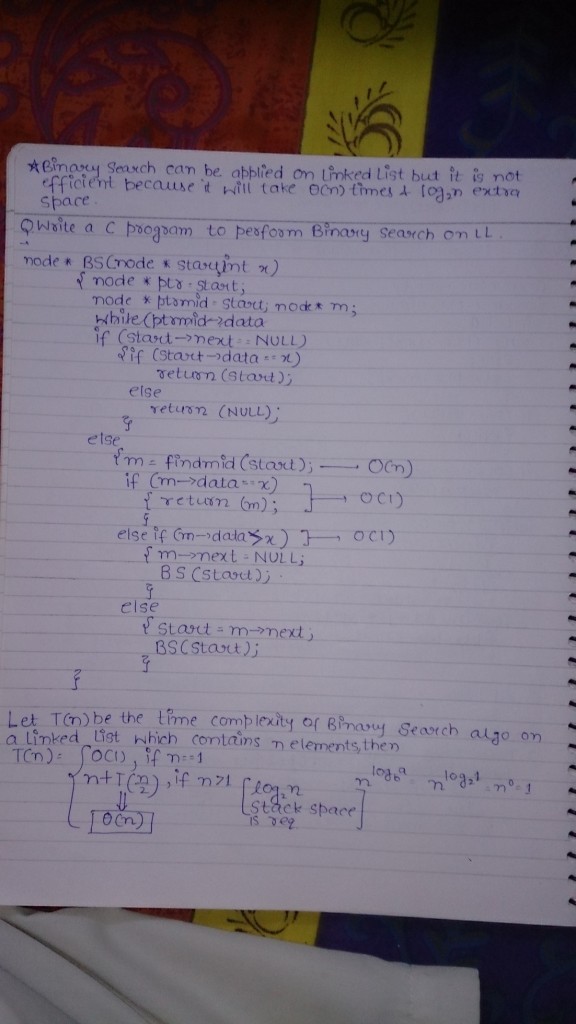 *Binary Search can be applied on linked list but it is not
efficient because it will take O(n) times & log₂n extra
space.
Q. Write a C program to perform Binary search on LL.
node * BS(node * start, int x)
{ node * ptr = start;
node * ptrmid = start; node * m;
while(ptrmid->data
if (start->next == NULL)
{ if (start->data == x)
return (start);
else
return (NULL);
}
else
{ m = findmid(start); — O(n)
if (m->data == x)
{ return (m); ] → O(1)
}
else if (m->data > x) ] → O(1)
{ m->next = NULL;
BS(start);
}
else
{ start = m->next;
BS(start);
}
}
Let T(n) be the time complexity of Binary Search algo on
a linked list which contains n elements, then
T(n) = { O(1), if n==1
n+T(n/2), if n>1 [log₂n stack space is req] n^log_b a = n^log₂1 = n⁰ = 1
⇓
O(n)